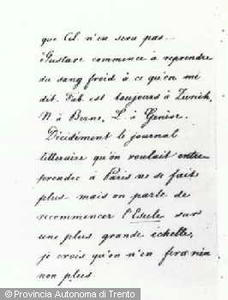 que cel n'en sera pas...
Gustave commence à reprendre
du sang froid à ce qu'on me
dit. Fab. est toujours à Zurich,
N à Berne, L. à Genève.
Décidément le journal
litteraire qu'on voulait entre
prendre à Paris ne se fait
plus mais on parle de
recommencer l'Esule sur
une plus grande échelle,
je crois qu'on n'en fera rien
non plus
© Provincia Autonoma di Trento